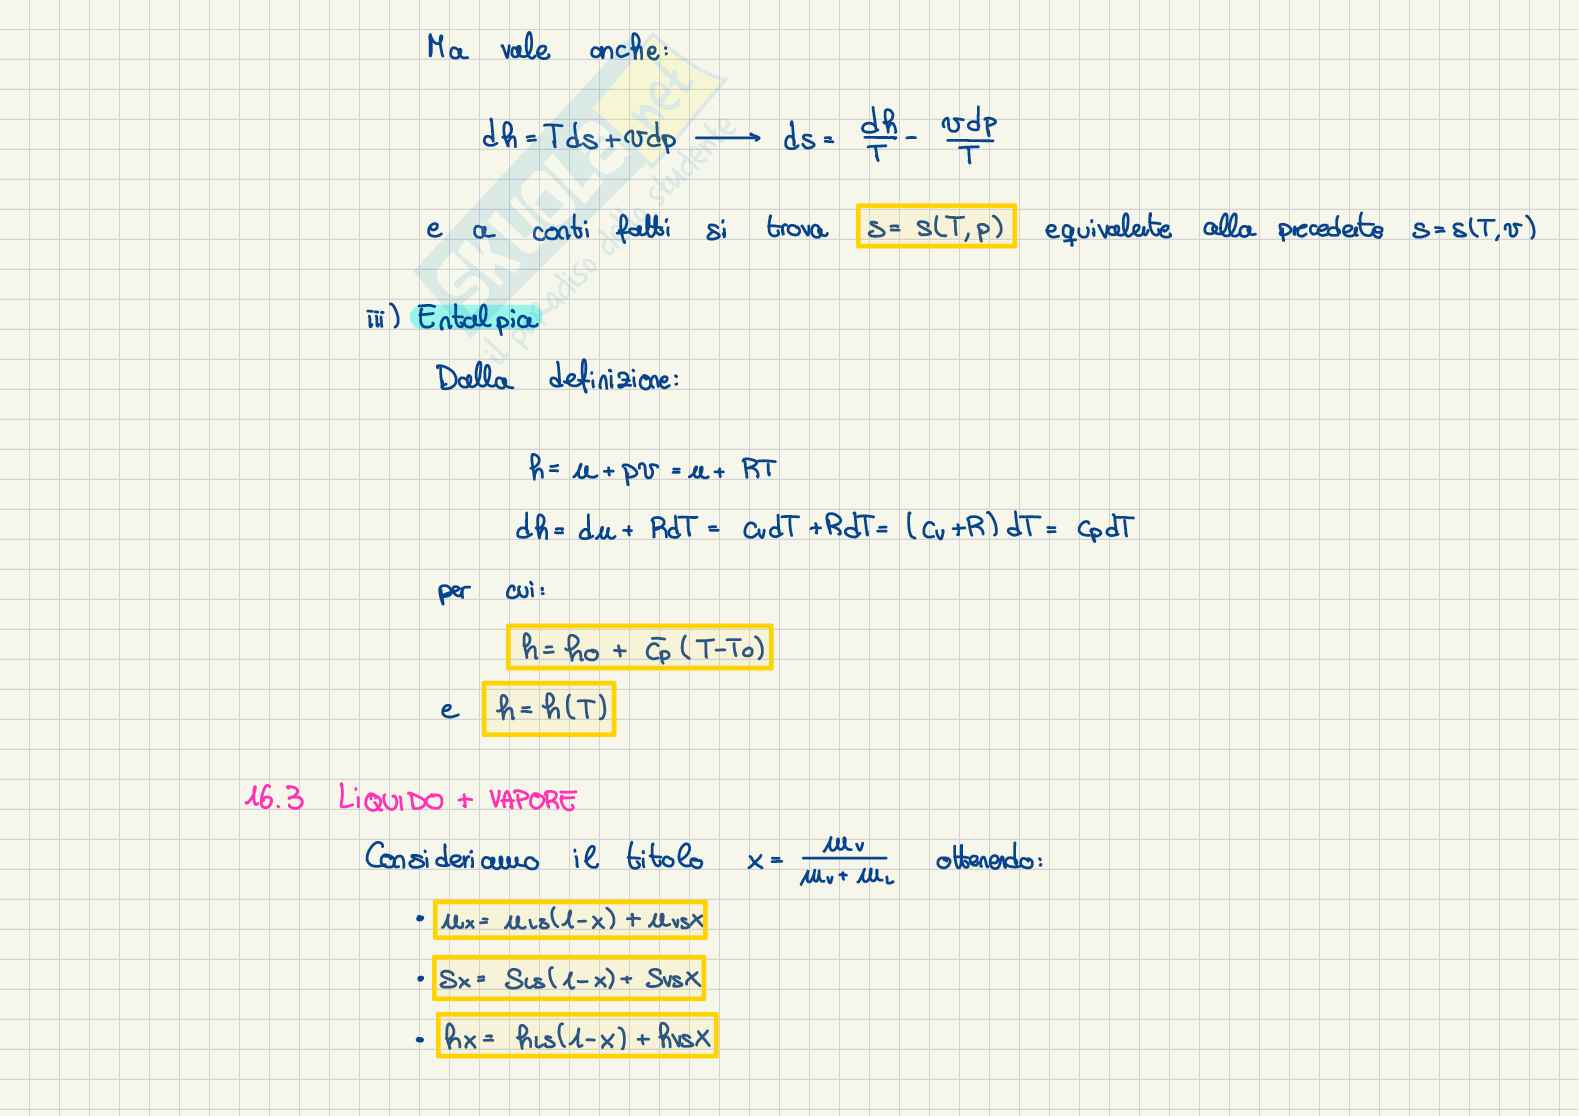 Ma vale anche:
dh = Tds + vdp → ds = dh/T - vdp/T
e a conti fatti si trova s = s(T, p) equivalente alla precedente s = s(T, v)
iii) Entalpia
Dalla definizione:
h = u + pv = u + RT
dh = du + RdT = cvdT + RdT = (cv + R) dT = cpdT
per cui:
h = h0 + c̄p (T - T0)
e h = h(T)
16.3 LIQUIDO + VAPORE
Consideriamo il titolo x = mv/(mv + mL) ottenendo:
• ux = uLS(1-x) + uVSx
• sx = sLS(1-x) + sVSx
• hx = hLS(1-x) + hVSx
SKUOLA.net
il paradiso dello studente